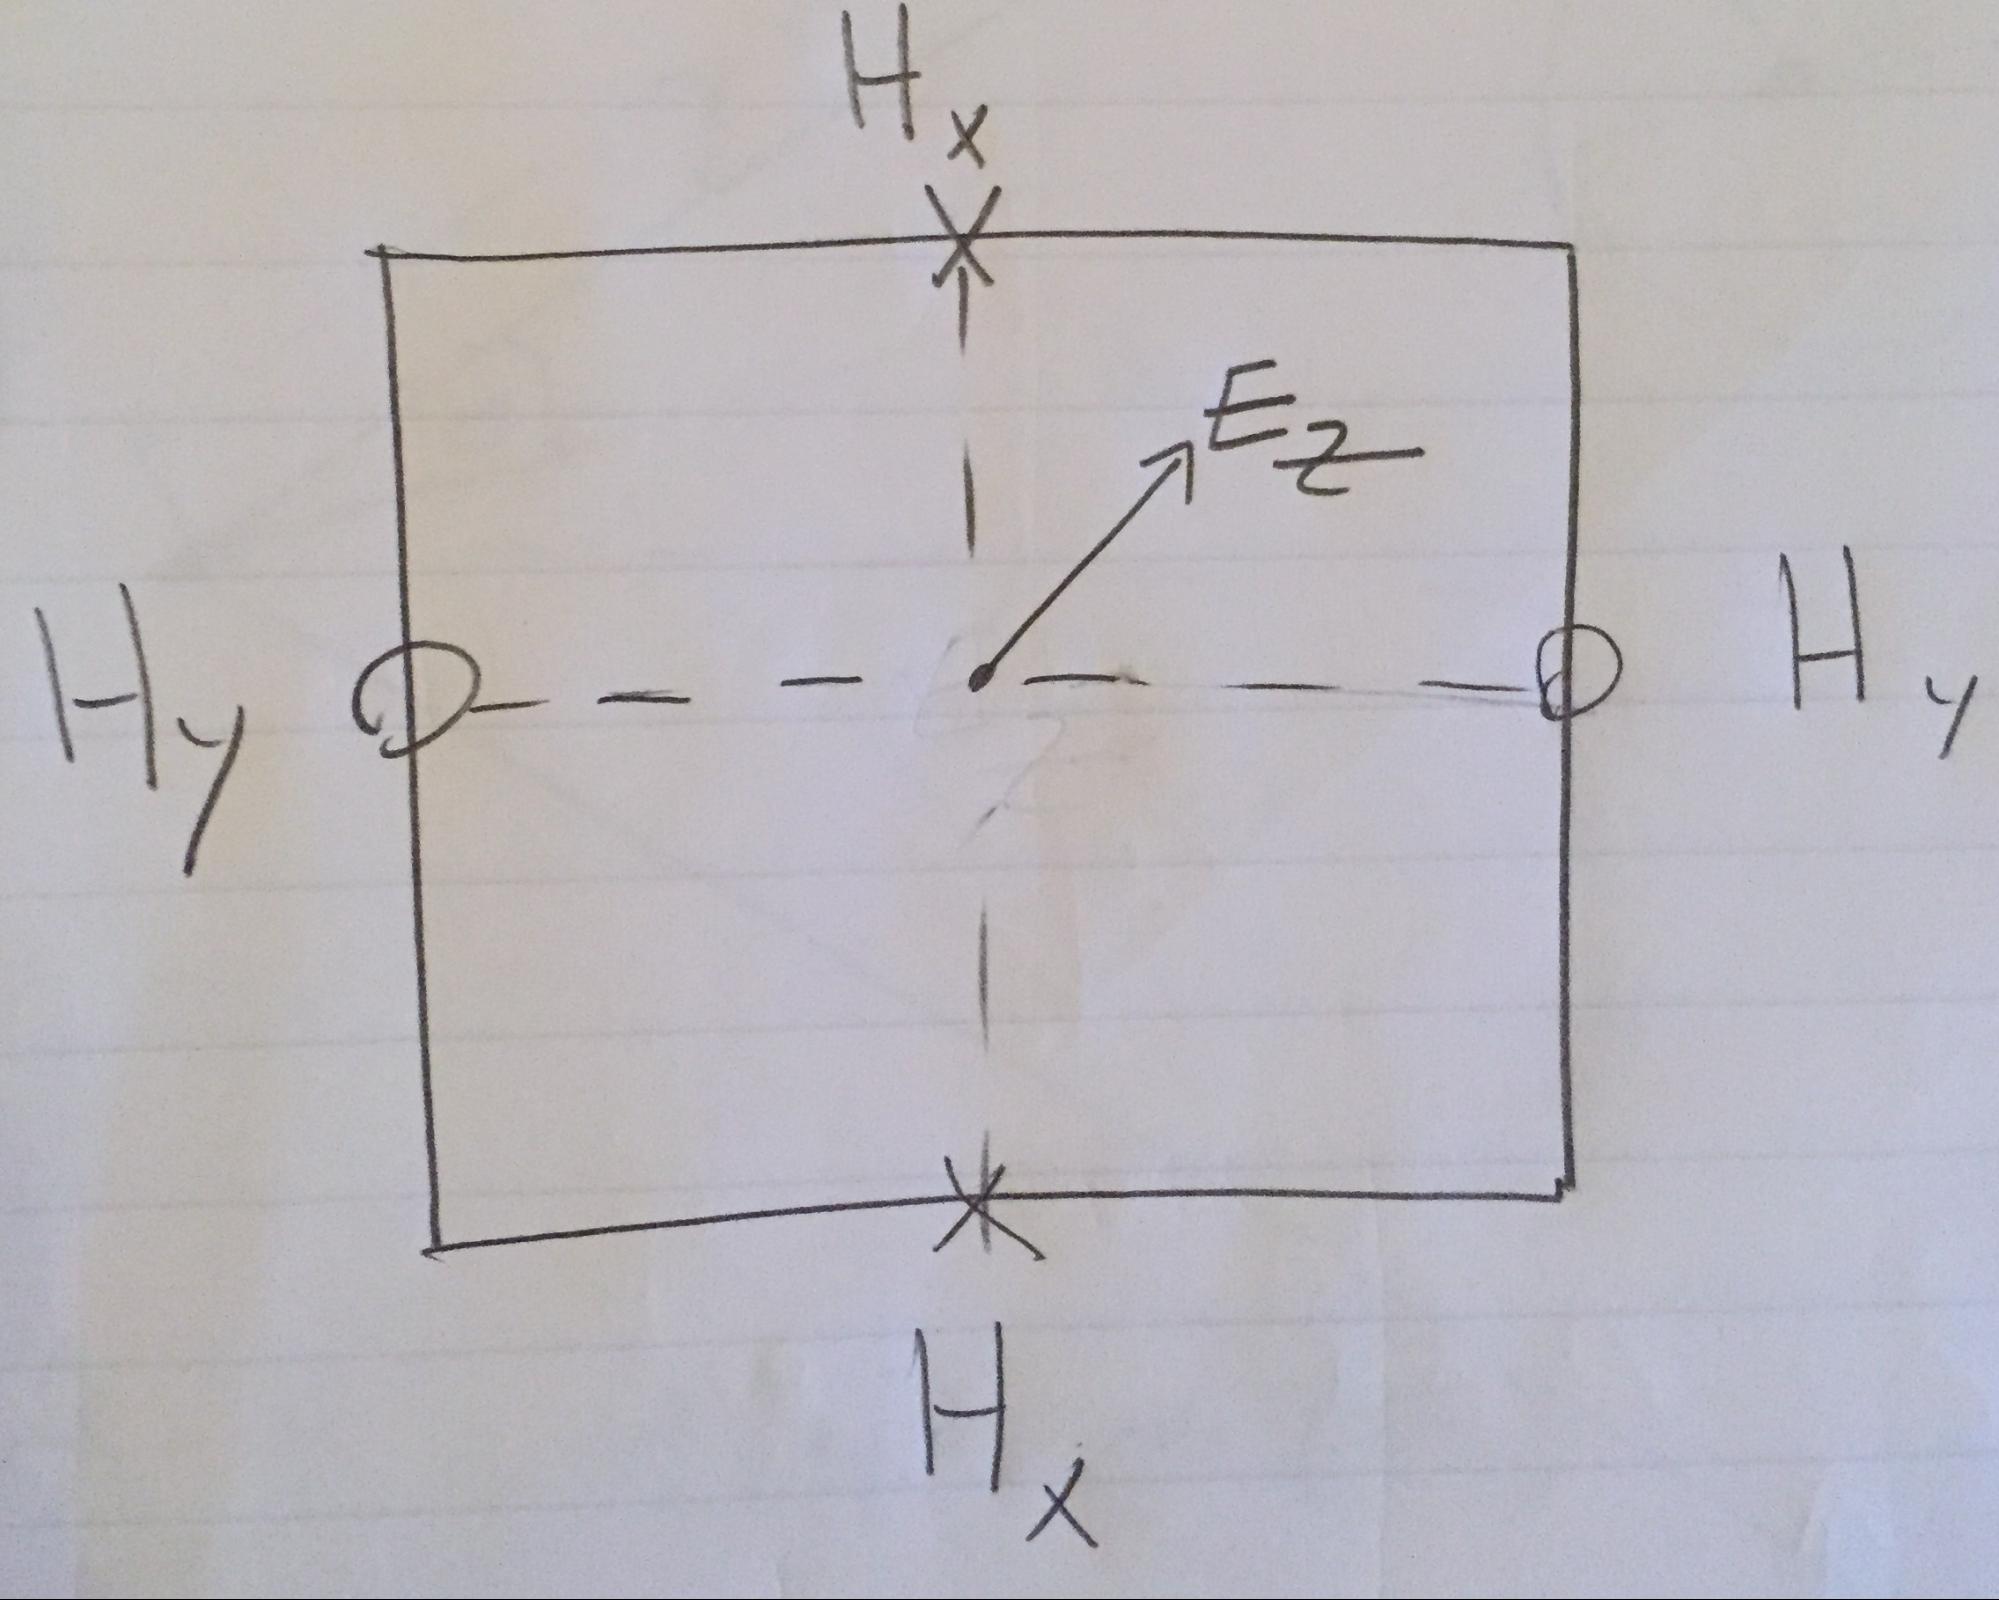 Hx
Ez
Hy
Hy
Hx